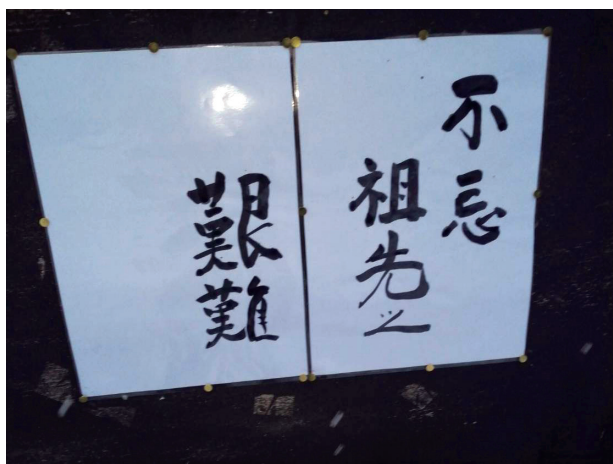 不忘
祖先之
艱難